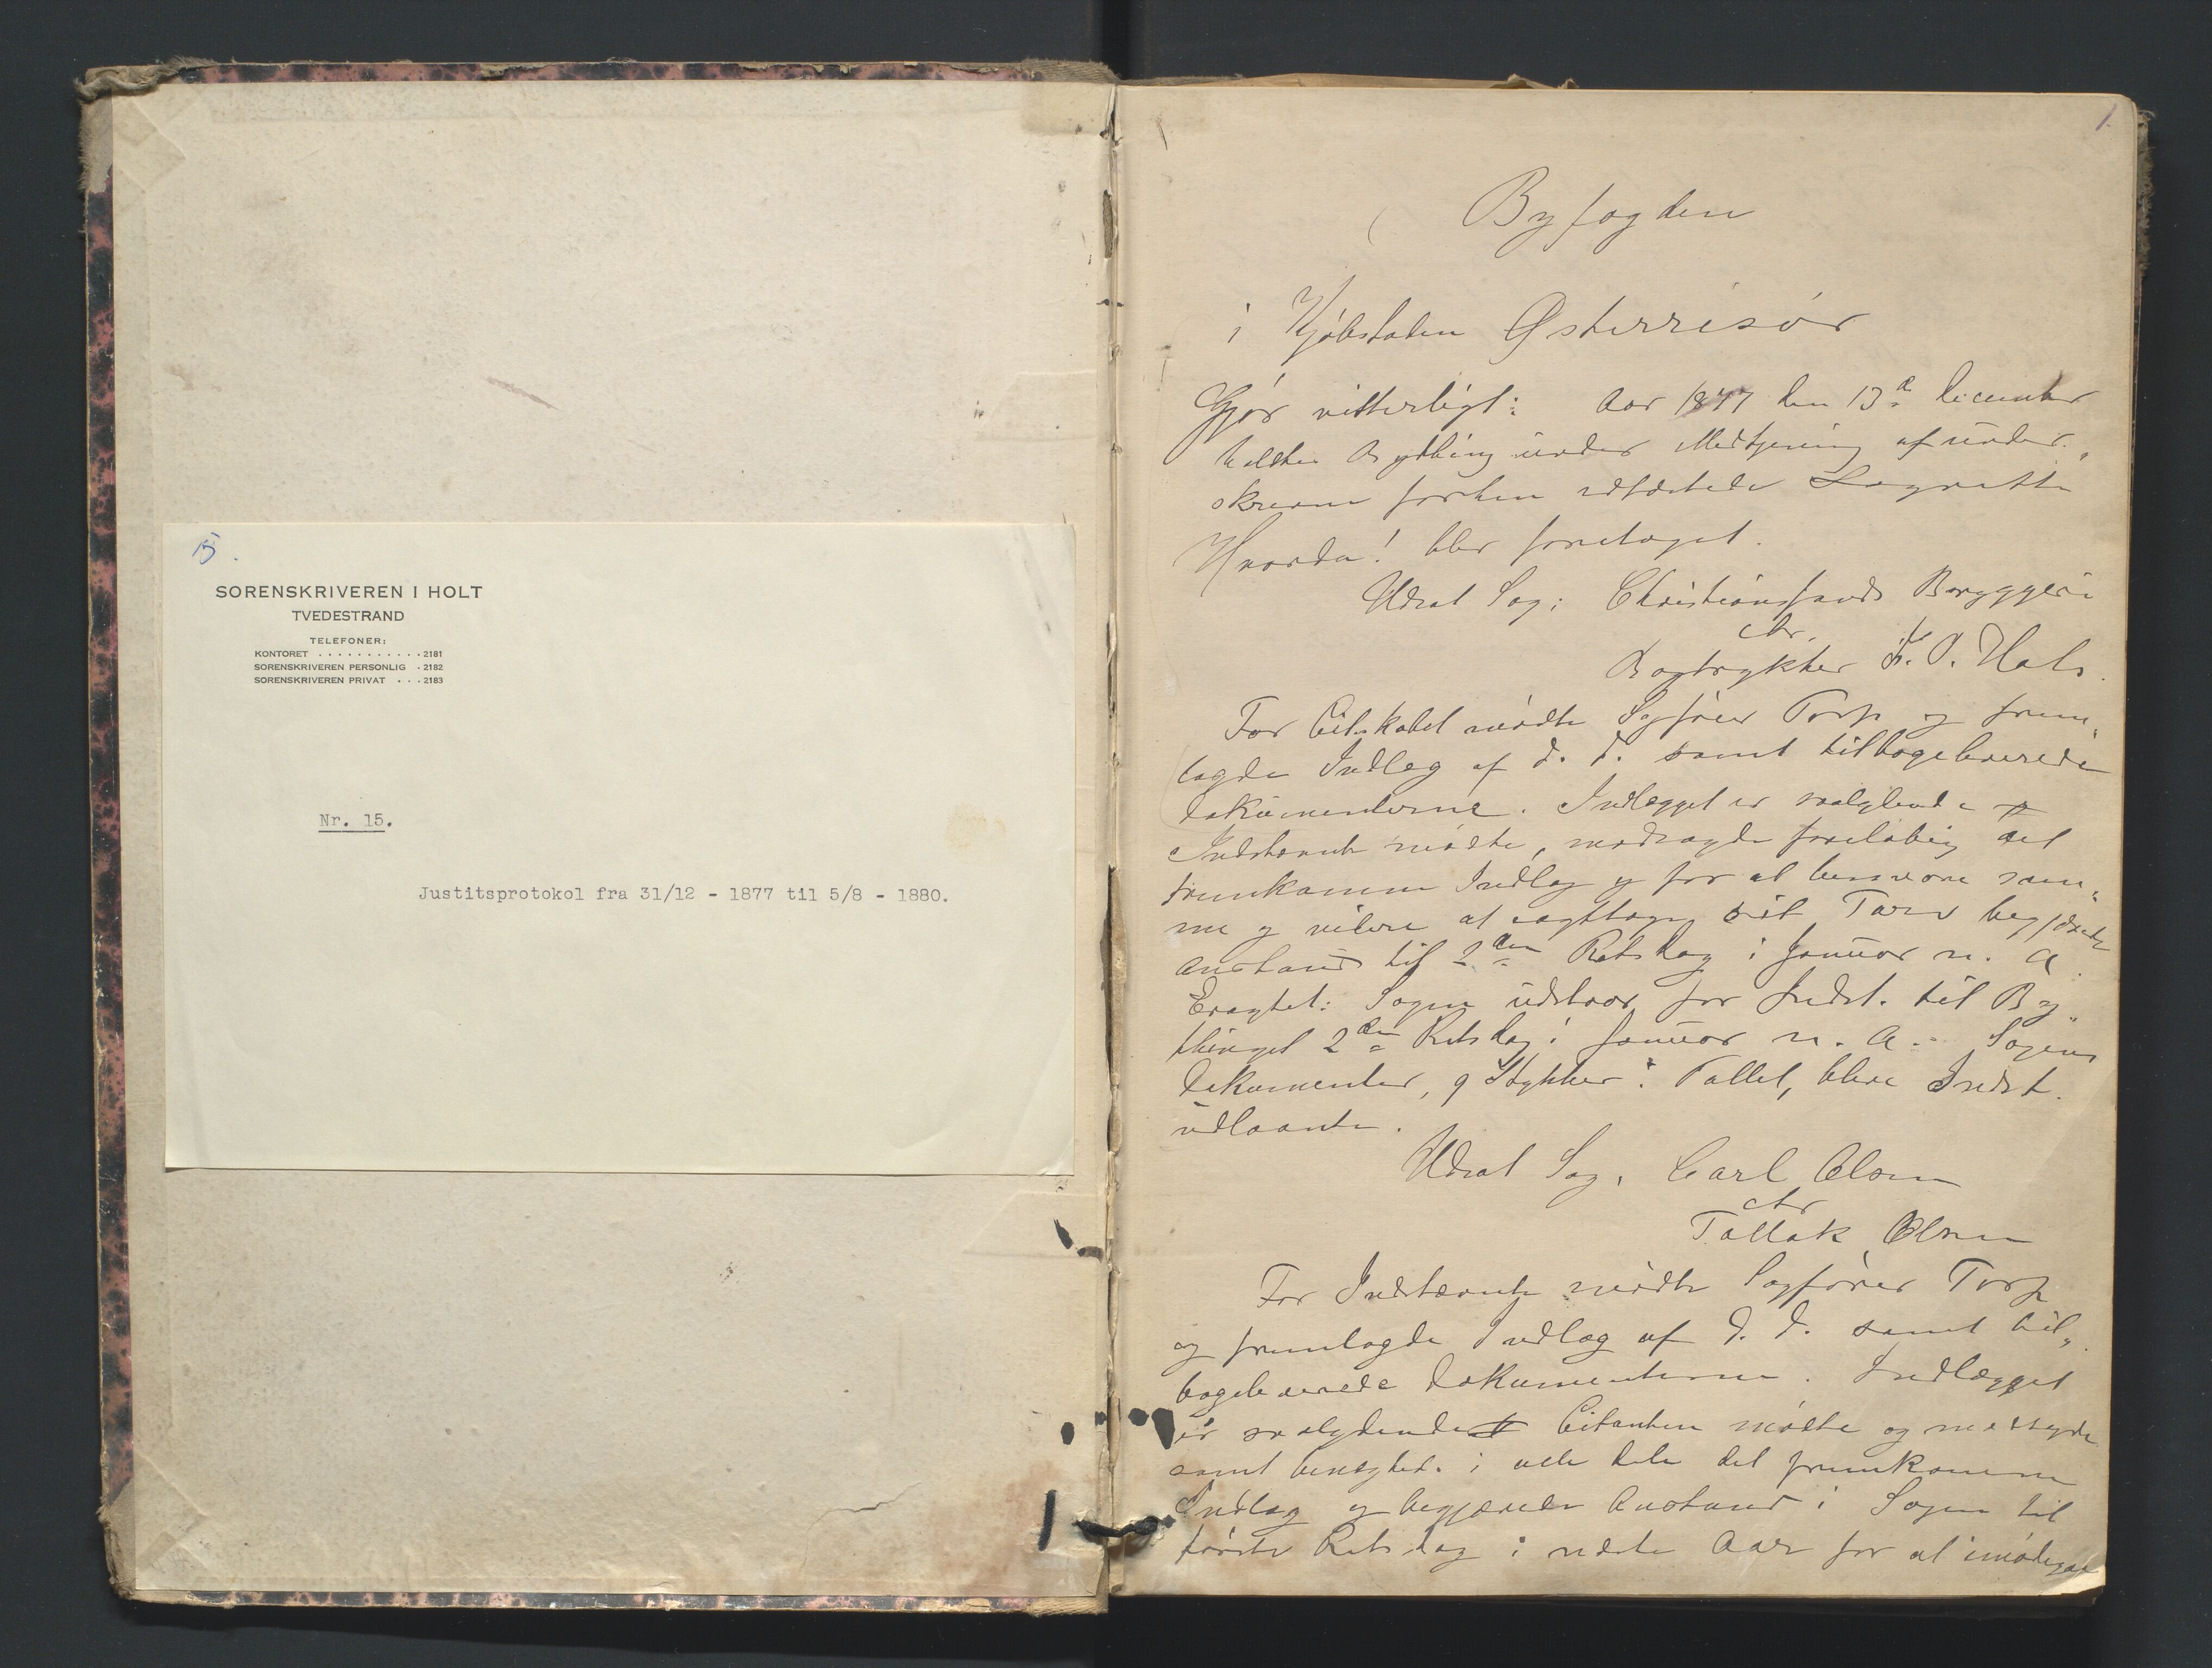 15.
SORENSKRIVEREN I HOLT
TVEDESTRAND
TELEFONER:
KONTORET . . . . . . . . . . . 2181
SORENSKRIVEREN PERSONLIG . 2182
SORENSKRIVEREN PRIVAT . . . 2183
Nr. 15.
Justitsprotokol fra 31/12 - 1877 til 5/8 - 1880.
1.
Byfogden
i Kjøbstaden Østerrisør
Gjør vitterligt: Aar 1877 den 13de December
holdtes Bything under Medtjening af under„
skrevne forhen edfæstede Lagrette
Hvorda! blev foretaget.
Udsat Sag: Christiansands Bryggeri
ctr.
Bogtrykker F. P. Hals.
For Citskabet mødte Sagfører Torp og frem„
lagde Indlæg af d. d. samt tilbageleverede
Dokumenterne. Indlægget er saalydende #
Indstævnte mødte, modsagde foreløbig det
fremkomne Indlæg og for at besvare sam„
me og videre at iagttage sit Tarv begjærede
Anstand til 2den Retsdag i Januar n. A.
Eragtet: Sagen udstaar for Indst. til By„
thinget 2den Retsdag i Januar n. A. - Sagens
Dokumenter, 9 Stykker i Tallet, bleve Indst.
udlaante.
Udsat Sag, Carl Olsen
ctr
Tallak Olsen
For Indstævnte mødte Sagfører Torp
og fremlagde Indlæg af d. d. samt til„
bageleverede Dokumenterne. Indlægget
er saalydende # Citanten mødte og modsagde
samt benægted. i alle dele det fremkomne
Indlæg og begjærede Anstand i Sagen til
første Retsdag i næste Aar for at imødegaa